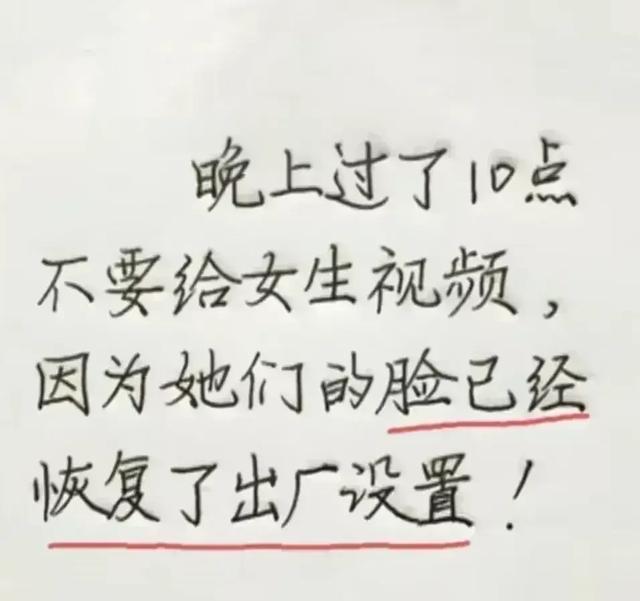 晚上过了10点
不要给女生视频，
因为她们的脸已经
恢复了出厂设置！